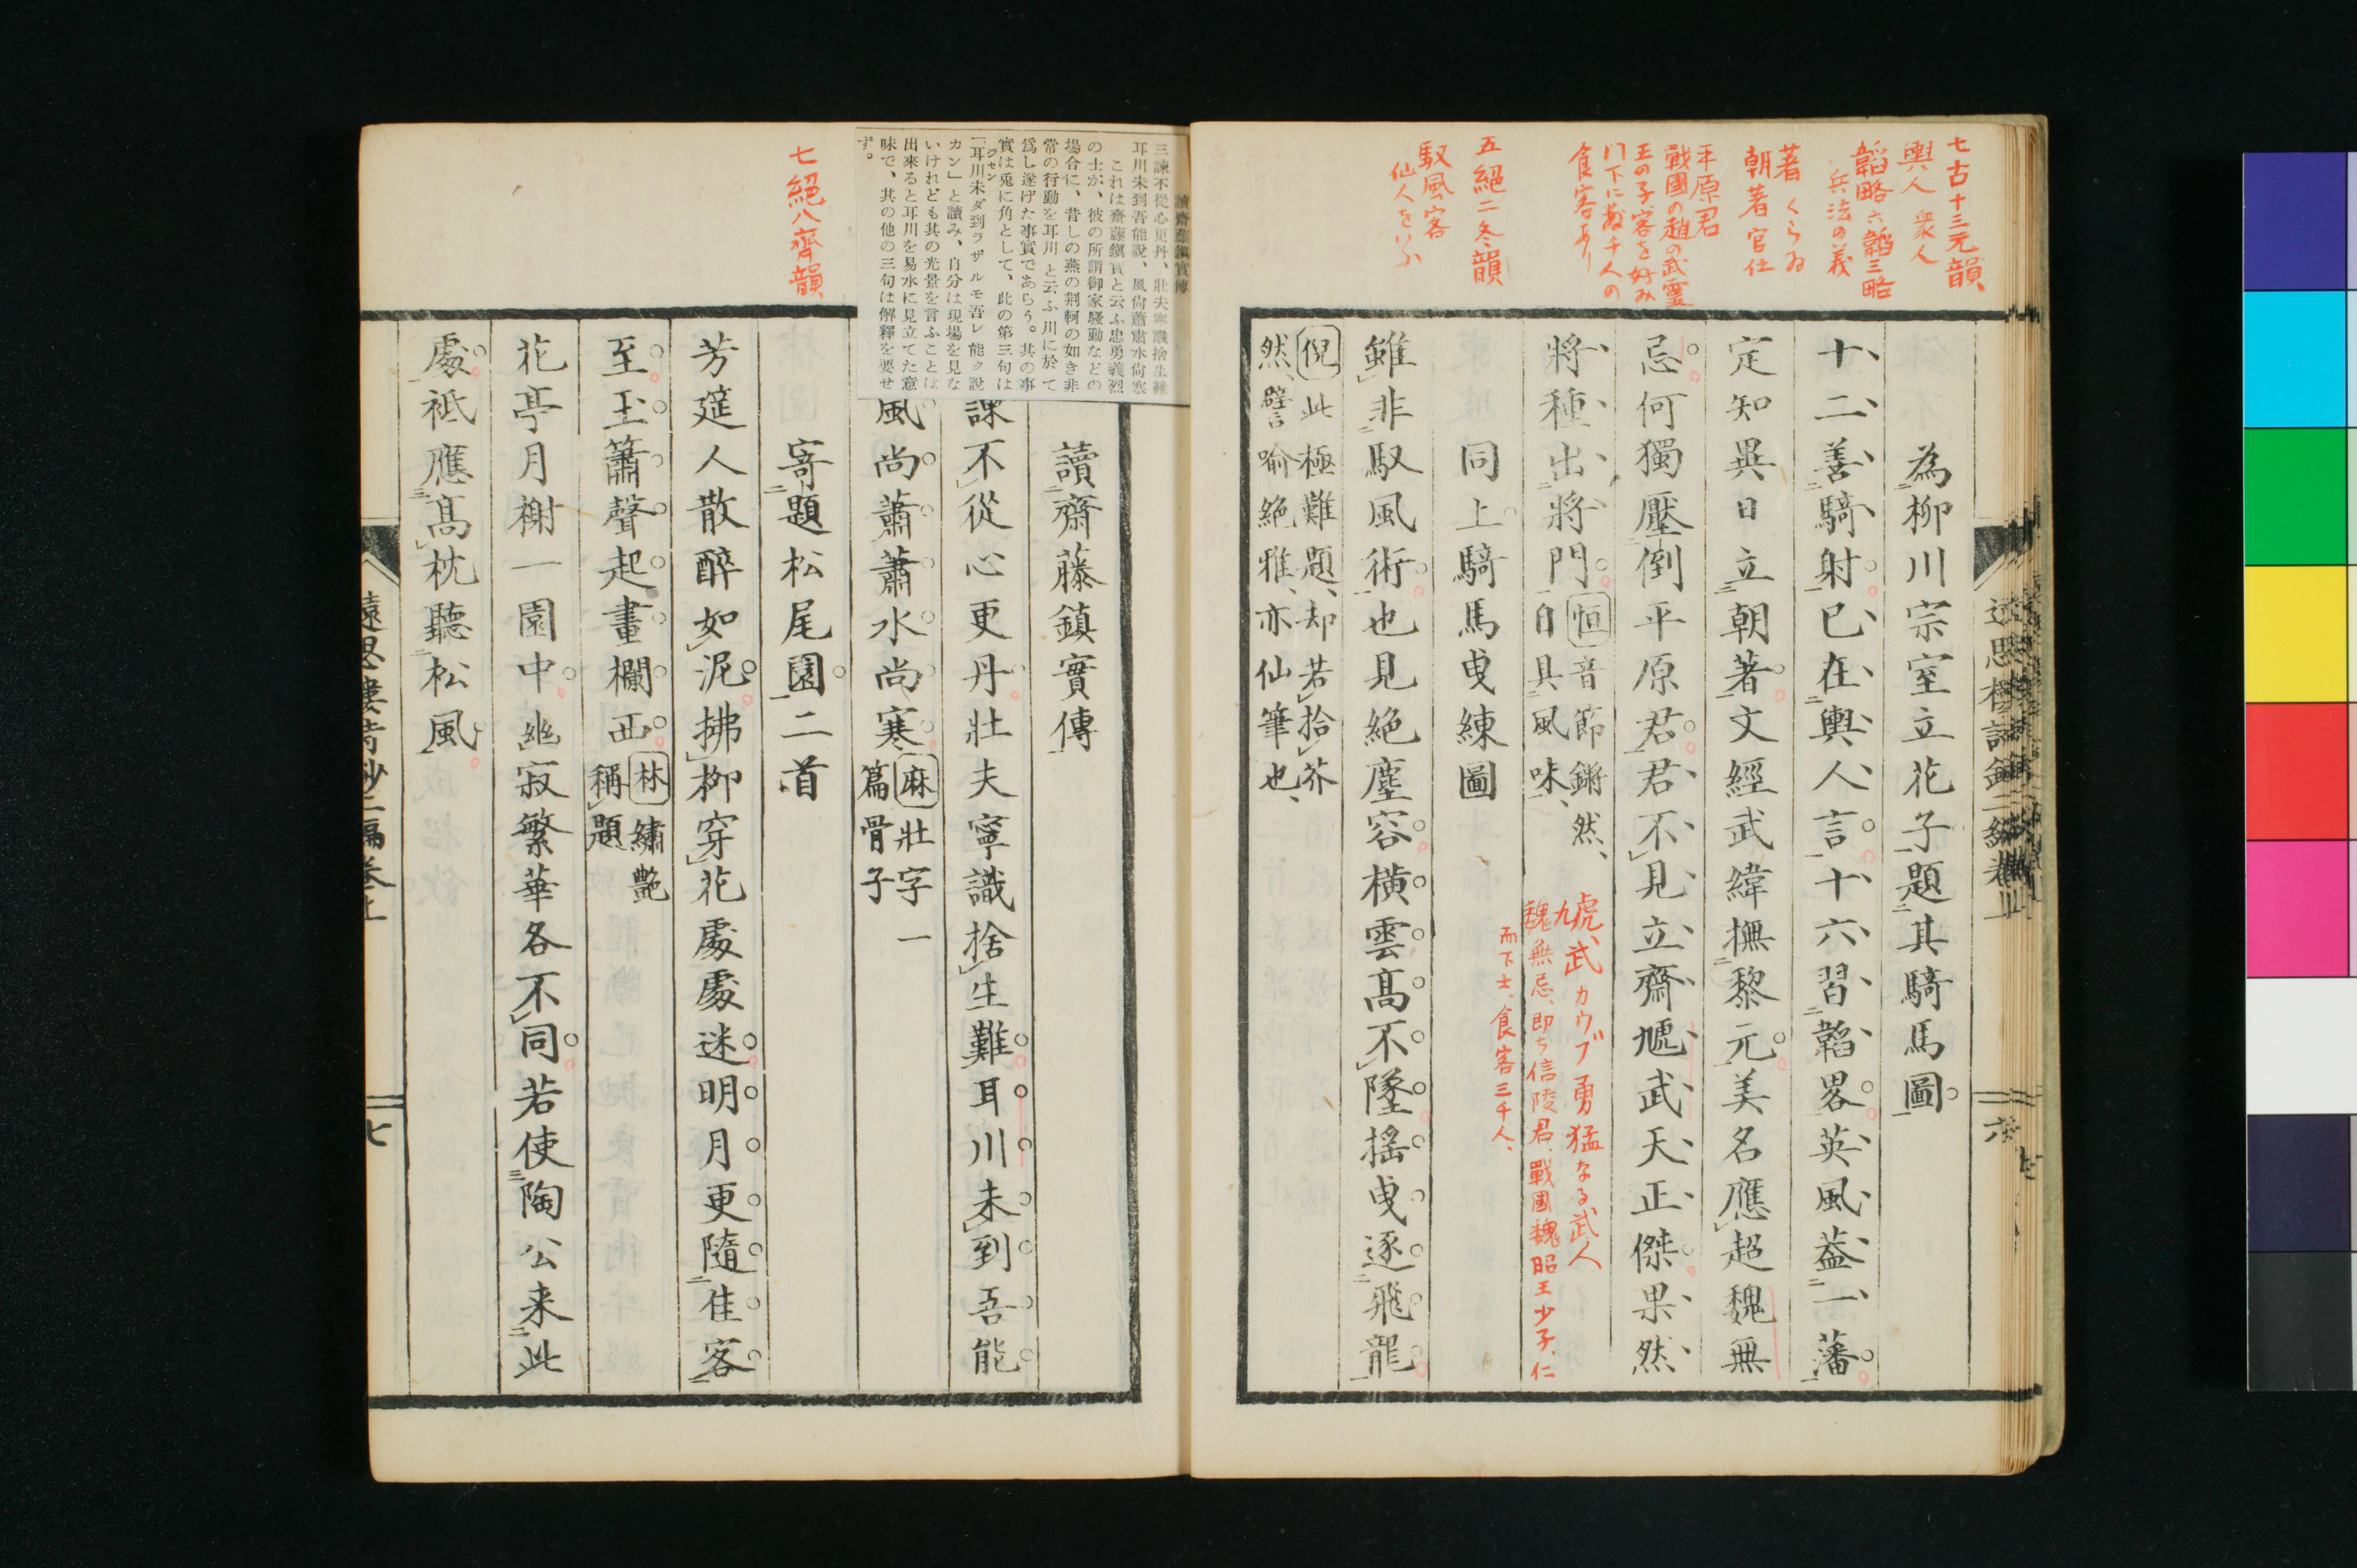 七古十三元韻
輿人 衆人
韜略 六韜三略
兵法の義
著 くらゐ
朝著 官仕
平原君
戰國の趙の武靈
王の子客を好み
門下に数千人の
食客あり
五絕二冬韻
馭風客
仙人をいふ
為柳川宗室立花子題其騎馬圖
十二善騎射已在輿人言十六習韜畧英風葢一藩
定知異日立朝著文經武緯撫黎元美名應超魏無
忌何獨壓倒平原君君不見立齋虓武天正傑果然
將種出將門
恒音節鏘然
自具風味
虓武 カウブ 勇猛なる武人
魏無忌、即ち信陵君、戰國魏昭王少子、仁
而下士、食客三千人、
同上騎馬曳練圖
雖非馭風術也見絕塵容橫雲高不墜搖曳逐飛龍
倪此極難題却若拾芥
然譬喻絕雅亦仙筆也
六
讀齋藤鎮實傳
三諫不從心更丹、壯夫寧識捨生難
耳川未到吾能說、風尙蕭蕭水尙寒
これは齋藤鎭實と云ふ忠勇義烈
の士が、彼の所謂御家騷動などの
場合に、昔しの燕の荆軻の如き非
常の行動を耳川と云ふ川に於て
爲し遂げた事實であらう。其の事
實は兎に角として、此の第三句は
「耳川未ダ到ラザルモ吾レ能ク說
カン」と讀み、自分は現場を見な
いけれども其の光景を言ふことは
出來ると耳川を易水に見立てた意
味で、其の他の三句は解釋を要せ
ず。
七絕八齊韻
讀齋藤鎮實傳
諫不從心更丹壯夫寧識捨生難耳川未到吾能
風尚蕭蕭水尚寒
麻壯字一
篇骨子
寄題松尾園二首
芳筵人散醉如泥拂柳穿花處處迷明月更隨佳客
至玉簫聲起畫欄西
林繡艷
稱題
花亭月榭一園中幽寂繁華各不同若使陶公来此
處祗應高枕聽松風
遠思樓詩鈔二編卷上
七